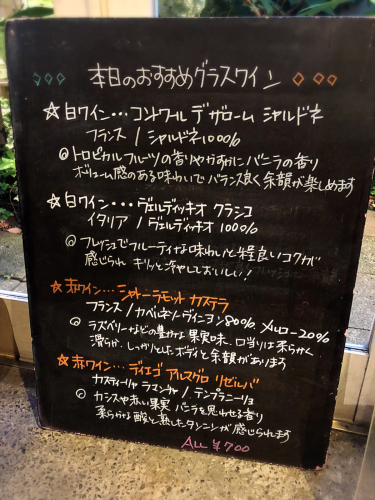 本日のおすすめグラスワイン
☆白ワイン…コントワール デ ザローム シャルドネ
フランス / シャルドネ100%
◎トロピカルフルーツの香りやかすかにバニラの香り
ボリューム感のある味わいでバランス良く余韻が楽しめます
☆白ワイン…ヴェルディッキオ クラシコ
イタリア / ヴェルディッキオ 100%
◎フレッシュでフルーティな味わいと程良いコクが
感じられ キリッと冷やしておいしい!
☆赤ワイン…シャトーラモット カステラ
フランス / カベルネソーヴィニヨン80% メルロー20%
◎ラズベリーなどの豊かな果実味、口当りは柔らかく
滑らか、しっかりとしたボディと余韻があります
☆赤ワイン…ディエゴ アルマグロ リゼルバ
カスティーリャ ラマンチャ / テンプラニーリョ
◎カシスや赤い果実 バニラを思わせる香り
柔らかな酸と熟したタンニンが感じられます
ALL ¥700